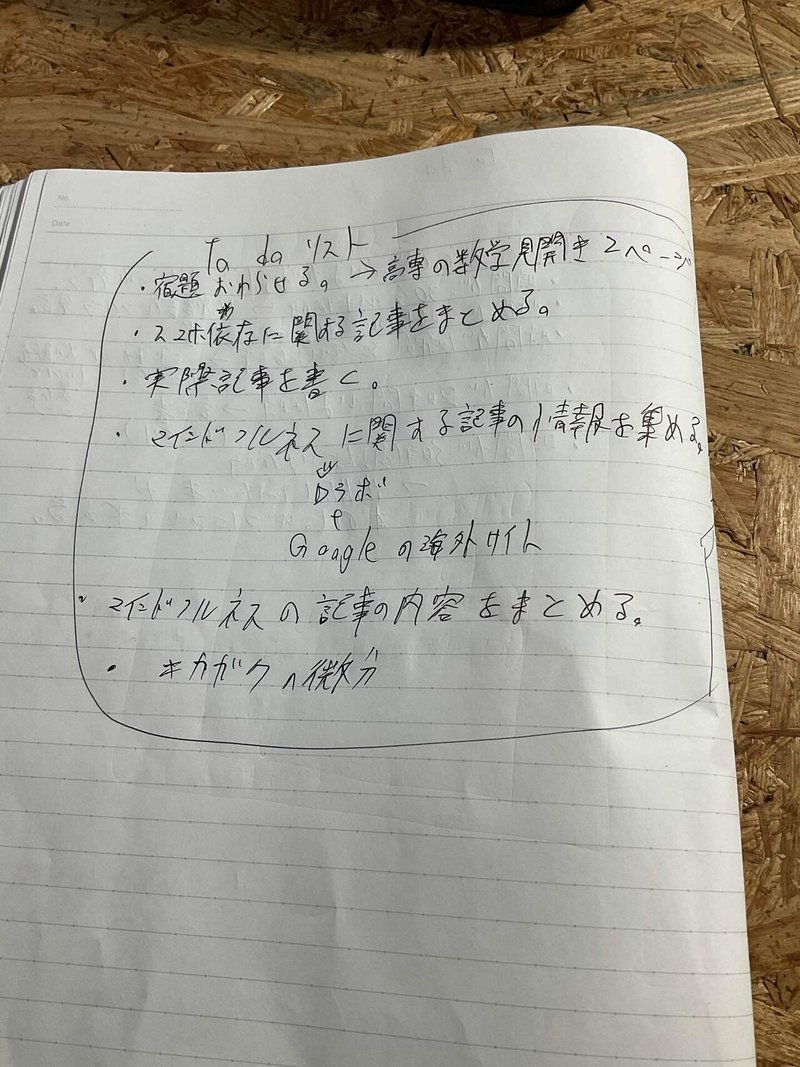 No.
Date
To do リスト
・宿題おわらせる。→高専の数学見開き2ページ
・スマホ依存に関する記事をまとめる。
・実際記事を書く。
・マインドフルネスに関する記事の情報を集める。
Dラボ
+
Googleの海外サイト
・マインドフルネスの記事の内容をまとめる。
・キカガクの微分